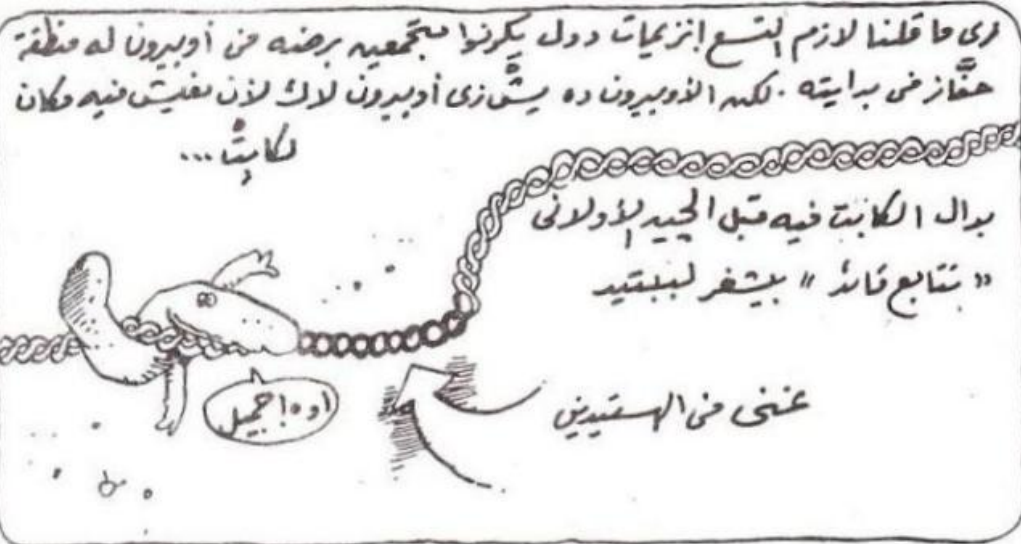 زى ما قلنا لازم التسع إنزيمات دول يكونوا متجمعين برضه فى أوبيرون له منطقة
حفَّاز فى بدايته. لكن الأوبيرون ده مِش زى أوبيرون لاك لأن مفيش فيه مكان
لكابِتْ...
بدال الكابت فيه قبل الجين الأولانى
« تتابع قائد » بيشفر لببتيد
غنى فى الهستيدين
اوه! جميل